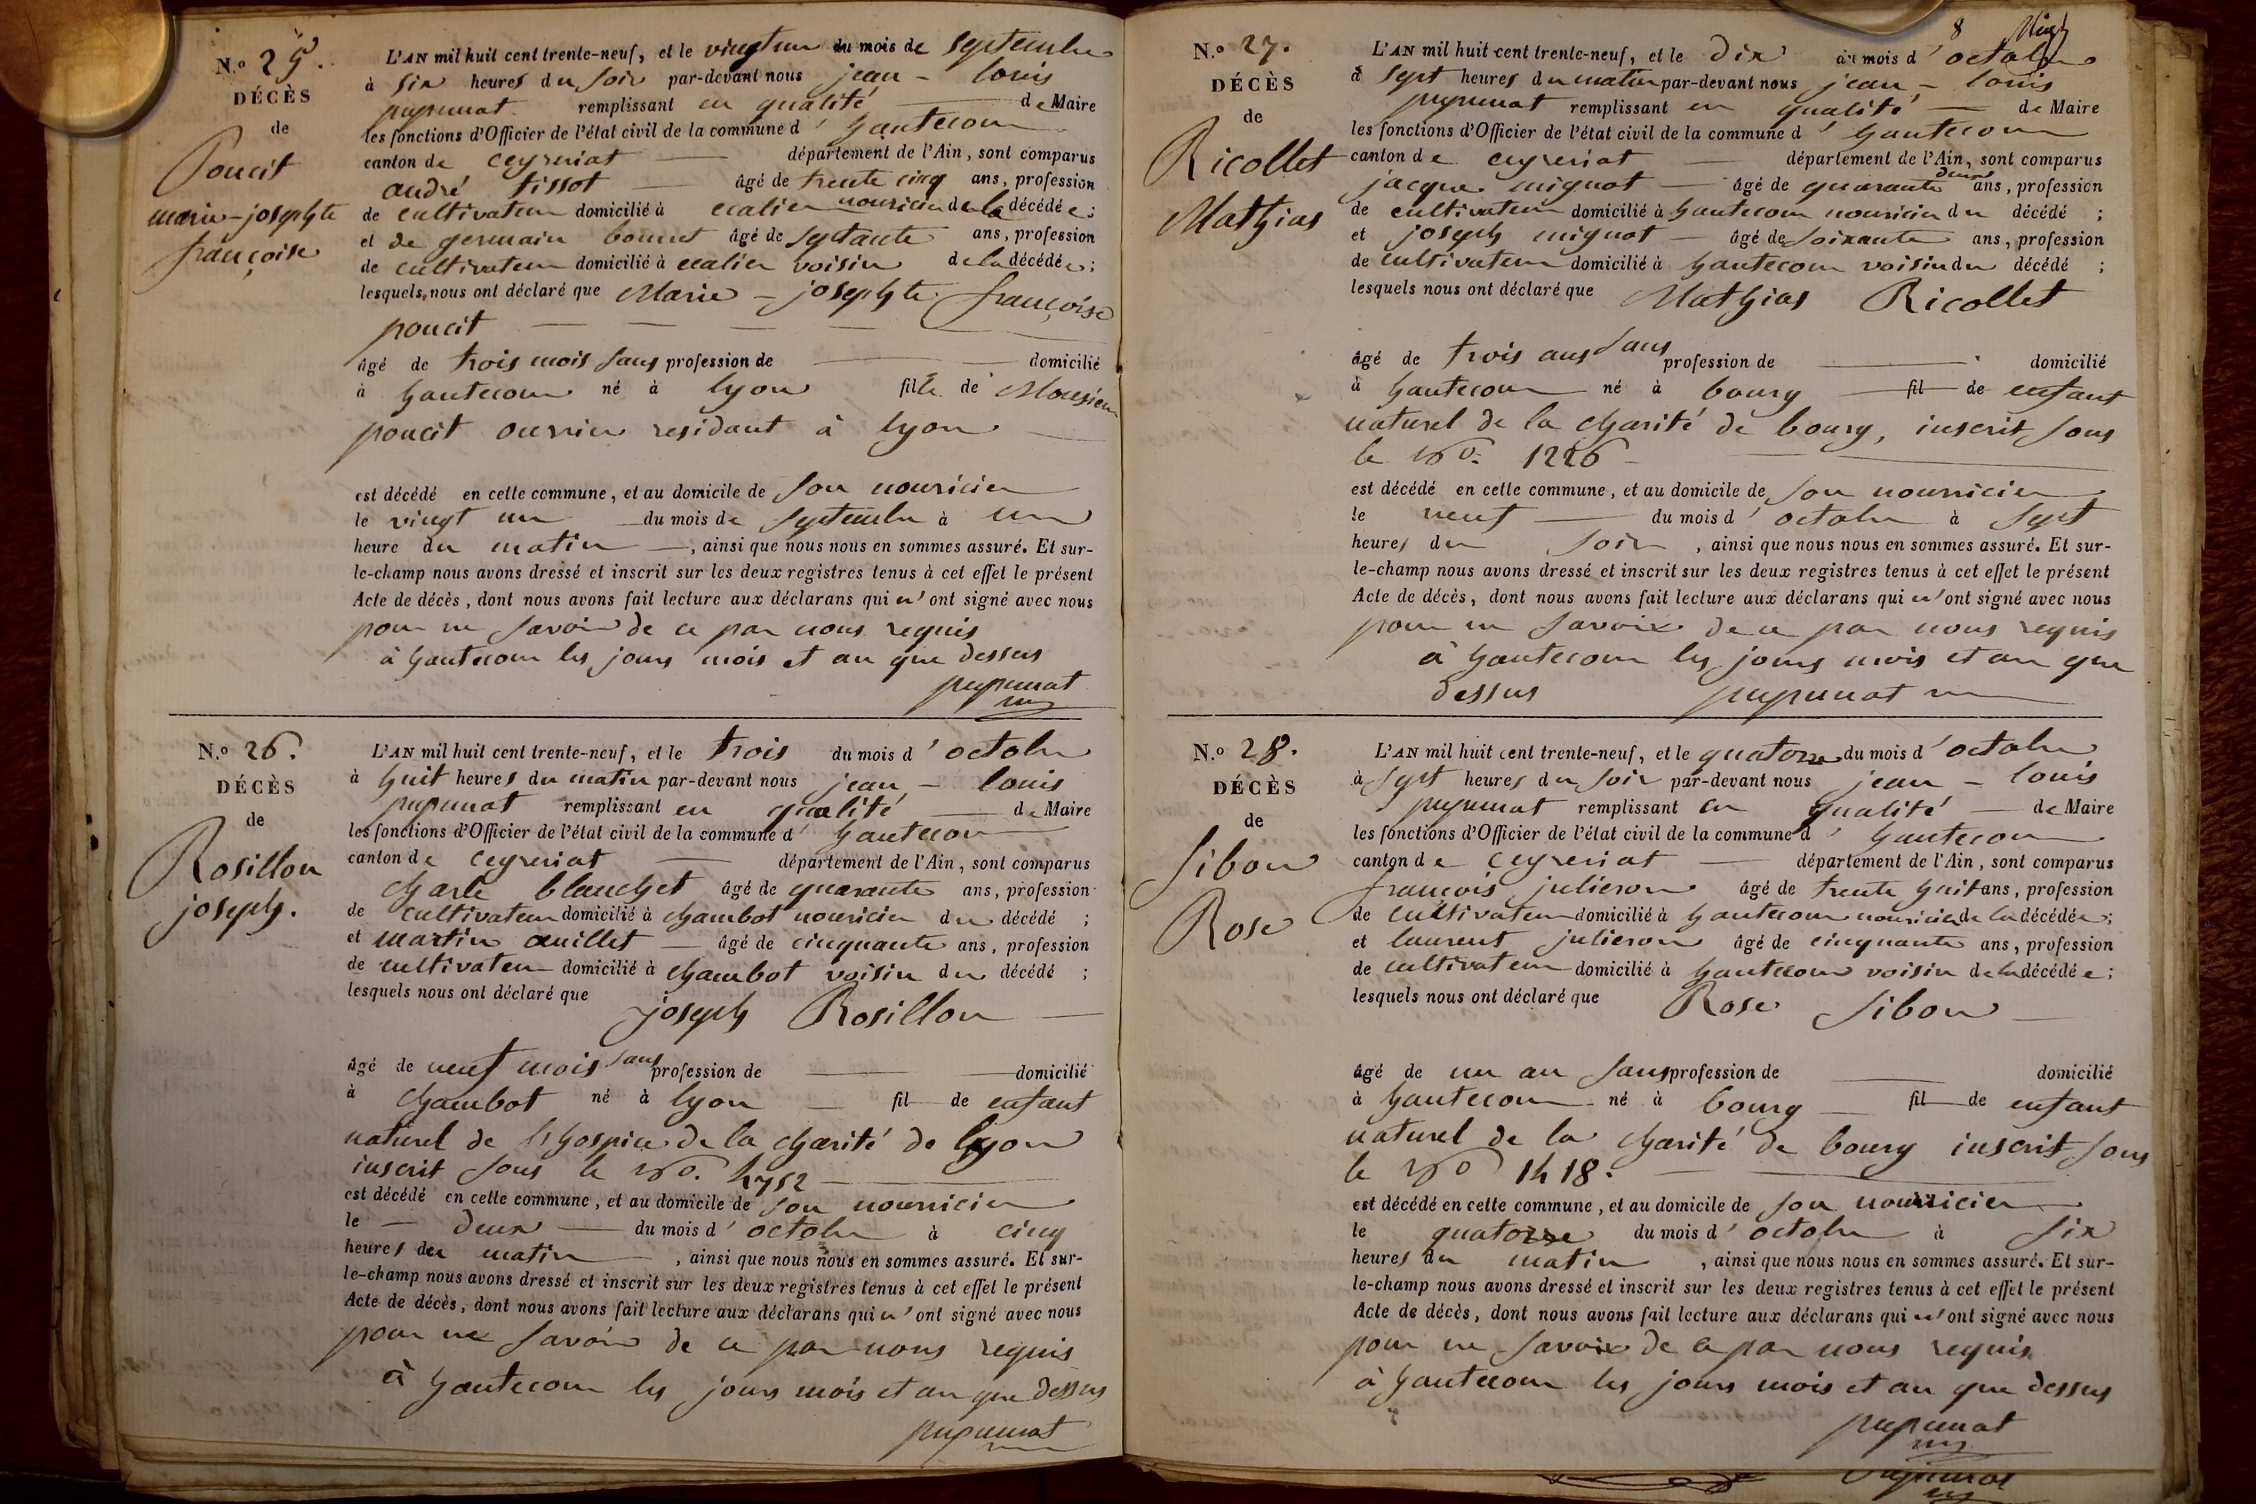 N.º 25.
DÉCÈS
de
Poncit
marie-josephte
françoise
L'AN mil huit cent trente-neuf, et le vingt un du mois de septembre
à six heures du soir par-devant nous jean-louis
pupunat remplissant en qualité de Maire
les fonctions d'Officier de l'état civil de la commune d' hautecour
canton de ceyzeriat département de l'Ain, sont comparus
andré tissot âgé de trente cinq ans, profession
de cultivateur domicilié à nouricier de la décédée;
et de germain bonnet âgé de septante ans, profession
de cultivateur domicilié à voisin de la décédée;
lesquels nous ont déclaré que Marie-josephte françoise
poncit
âgé de trois mois sans profession de domicilié
à hautecour né à lyon fille de Monsieur
poncit ouvrier residant à lyon
est décédé en cette commune, et au domicile de son nouricier
le vingt un du mois de septembre à un
heure du matin, ainsi que nous nous en sommes assuré. Et sur-
le-champ nous avons dressé et inscrit sur les deux registres tenus à cet effet le présent
Acte de décès, dont nous avons fait lecture aux déclarans qui n'ont signé avec nous
pour ne savoir de ce par nous requis
à hautecour les jours mois et an que dessus
pupunat
N.º 26.
DÉCÈS
de
Rosillon
joseph.
L'AN mil huit cent trente-neuf, et le trois du mois d'octobre
à huit heures du matin par-devant nous jean-louis
pupunat remplissant en qualité de Maire
les fonctions d'Officier de l'état civil de la commune d' hautecour
canton de ceyzeriat département de l'Ain, sont comparus
charle blanchet âgé de quarante ans, profession
de cultivateur domicilié à chambot nouricier du décédé;
et martin âgé de cinquante ans, profession
de cultivateur domicilié à chambot voisin du décédé;
lesquels nous ont déclaré que
joseph Rosillon
âgé de neuf mois sans profession de domicilié
à chambot né à lyon fil de enfant
naturel de l'hospice de la charité de lyon
inscrit sous le No. 4752
est décédé en cette commune, et au domicile de son nourricier
le deux du mois d'octobre à cinq
heures du matin, ainsi que nous nous en sommes assuré. Et sur-
le-champ nous avons dressé et inscrit sur les deux registres tenus à cet effet le présent
Acte de décès, dont nous avons fait lecture aux déclarans qui n'ont signé avec nous
pour ne savoir de ce par nous requis
à hautecour les jours mois et an que dessus
pupunat
8
N.º 27.
DÉCÈS
de
Ricollet
Mathias
L'AN mil huit cent trente-neuf, et le dix du mois d'octobre
à sept heures du matin par-devant nous jean-louis
pupunat remplissant en qualité de Maire
les fonctions d'Officier de l'état civil de la commune d' hautecour
canton de ceyzeriat département de l'Ain, sont comparus
jacque mignot âgé de quarante deux ans, profession
de cultivateur domicilié à hautecour nouricier du décédé;
et joseph mignot âgé de soixante ans, profession
de cultivateur domicilié à hautecour voisin du décédé;
lesquels nous ont déclaré que Mathias Ricollet
âgé de trois ans sans profession de domicilié
à hautecour né à bourg fil de enfant
naturel de la charité de bourg, inscrit sous
le No. 1226
est décédé en cette commune, et au domicile de son nourricier
le neuf du mois d'octobre à sept
heures du soir, ainsi que nous nous en sommes assuré. Et sur-
le-champ nous avons dressé et inscrit sur les deux registres tenus à cet effet le présent
Acte de décès, dont nous avons fait lecture aux déclarans qui n'ont signé avec nous
pour ne savoir de ce par nous requis
à hautecour les jours mois et an que
dessus pupunat
N.º 28.
DÉCÈS
de
Sibon
Rose
L'AN mil huit cent trente-neuf, et le quatorze du mois d'octobre
à sept heures du soir par-devant nous jean-louis
pupunat remplissant en qualité de Maire
les fonctions d'Officier de l'état civil de la commune d' hautecour
canton de ceyzeriat département de l'Ain, sont comparus
françois julieron âgé de trente huit ans, profession
de cultivateur domicilié à hautecour nouricier de la décédée;
et laurent julieron âgé de cinquante ans, profession
de cultivateur domicilié à hautecour voisin de la décédée;
lesquels nous ont déclaré que Rose Sibon
âgé de un an sans profession de domicilié
à hautecour né à bourg fil de enfant
naturel de la charité de bourg inscrit sous
le No 1418.
est décédé en cette commune, et au domicile de son nourricier
le quatorze du mois d'octobre à six
heures du matin, ainsi que nous nous en sommes assuré. Et sur-
le-champ nous avons dressé et inscrit sur les deux registres tenus à cet effet le présent
Acte de décès, dont nous avons fait lecture aux déclarans qui n'ont signé avec nous
pour ne savoir de ce par nous requis
à hautecour les jours mois et an que dessus
pupunat
pupunat